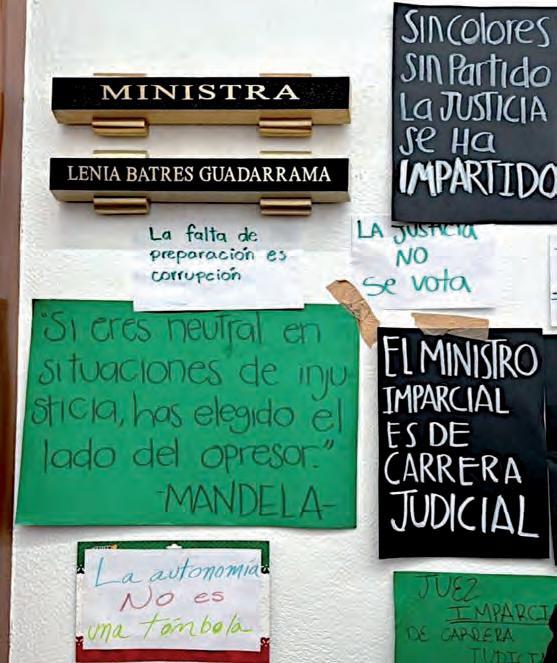 MINISTRA
LENIA BATRES GUADARRAMA
Sin colores
sin Partido
La JUSTICIA
se Ha
IMPARTIDO
La falta de
preparación es
corrupción
LA JUSTICIA
NO
Se vota
"Si eres neutral en
situaciones de inju-
sticia, has elegido el
lado del opresor."
-MANDELA-
EL MINISTRO
IMPARCIAL
ES DE
CARRERA
JUDICIAL
La autonomía
No es
una tómbola
JUEZ
IMPARCI
DE CARRERA